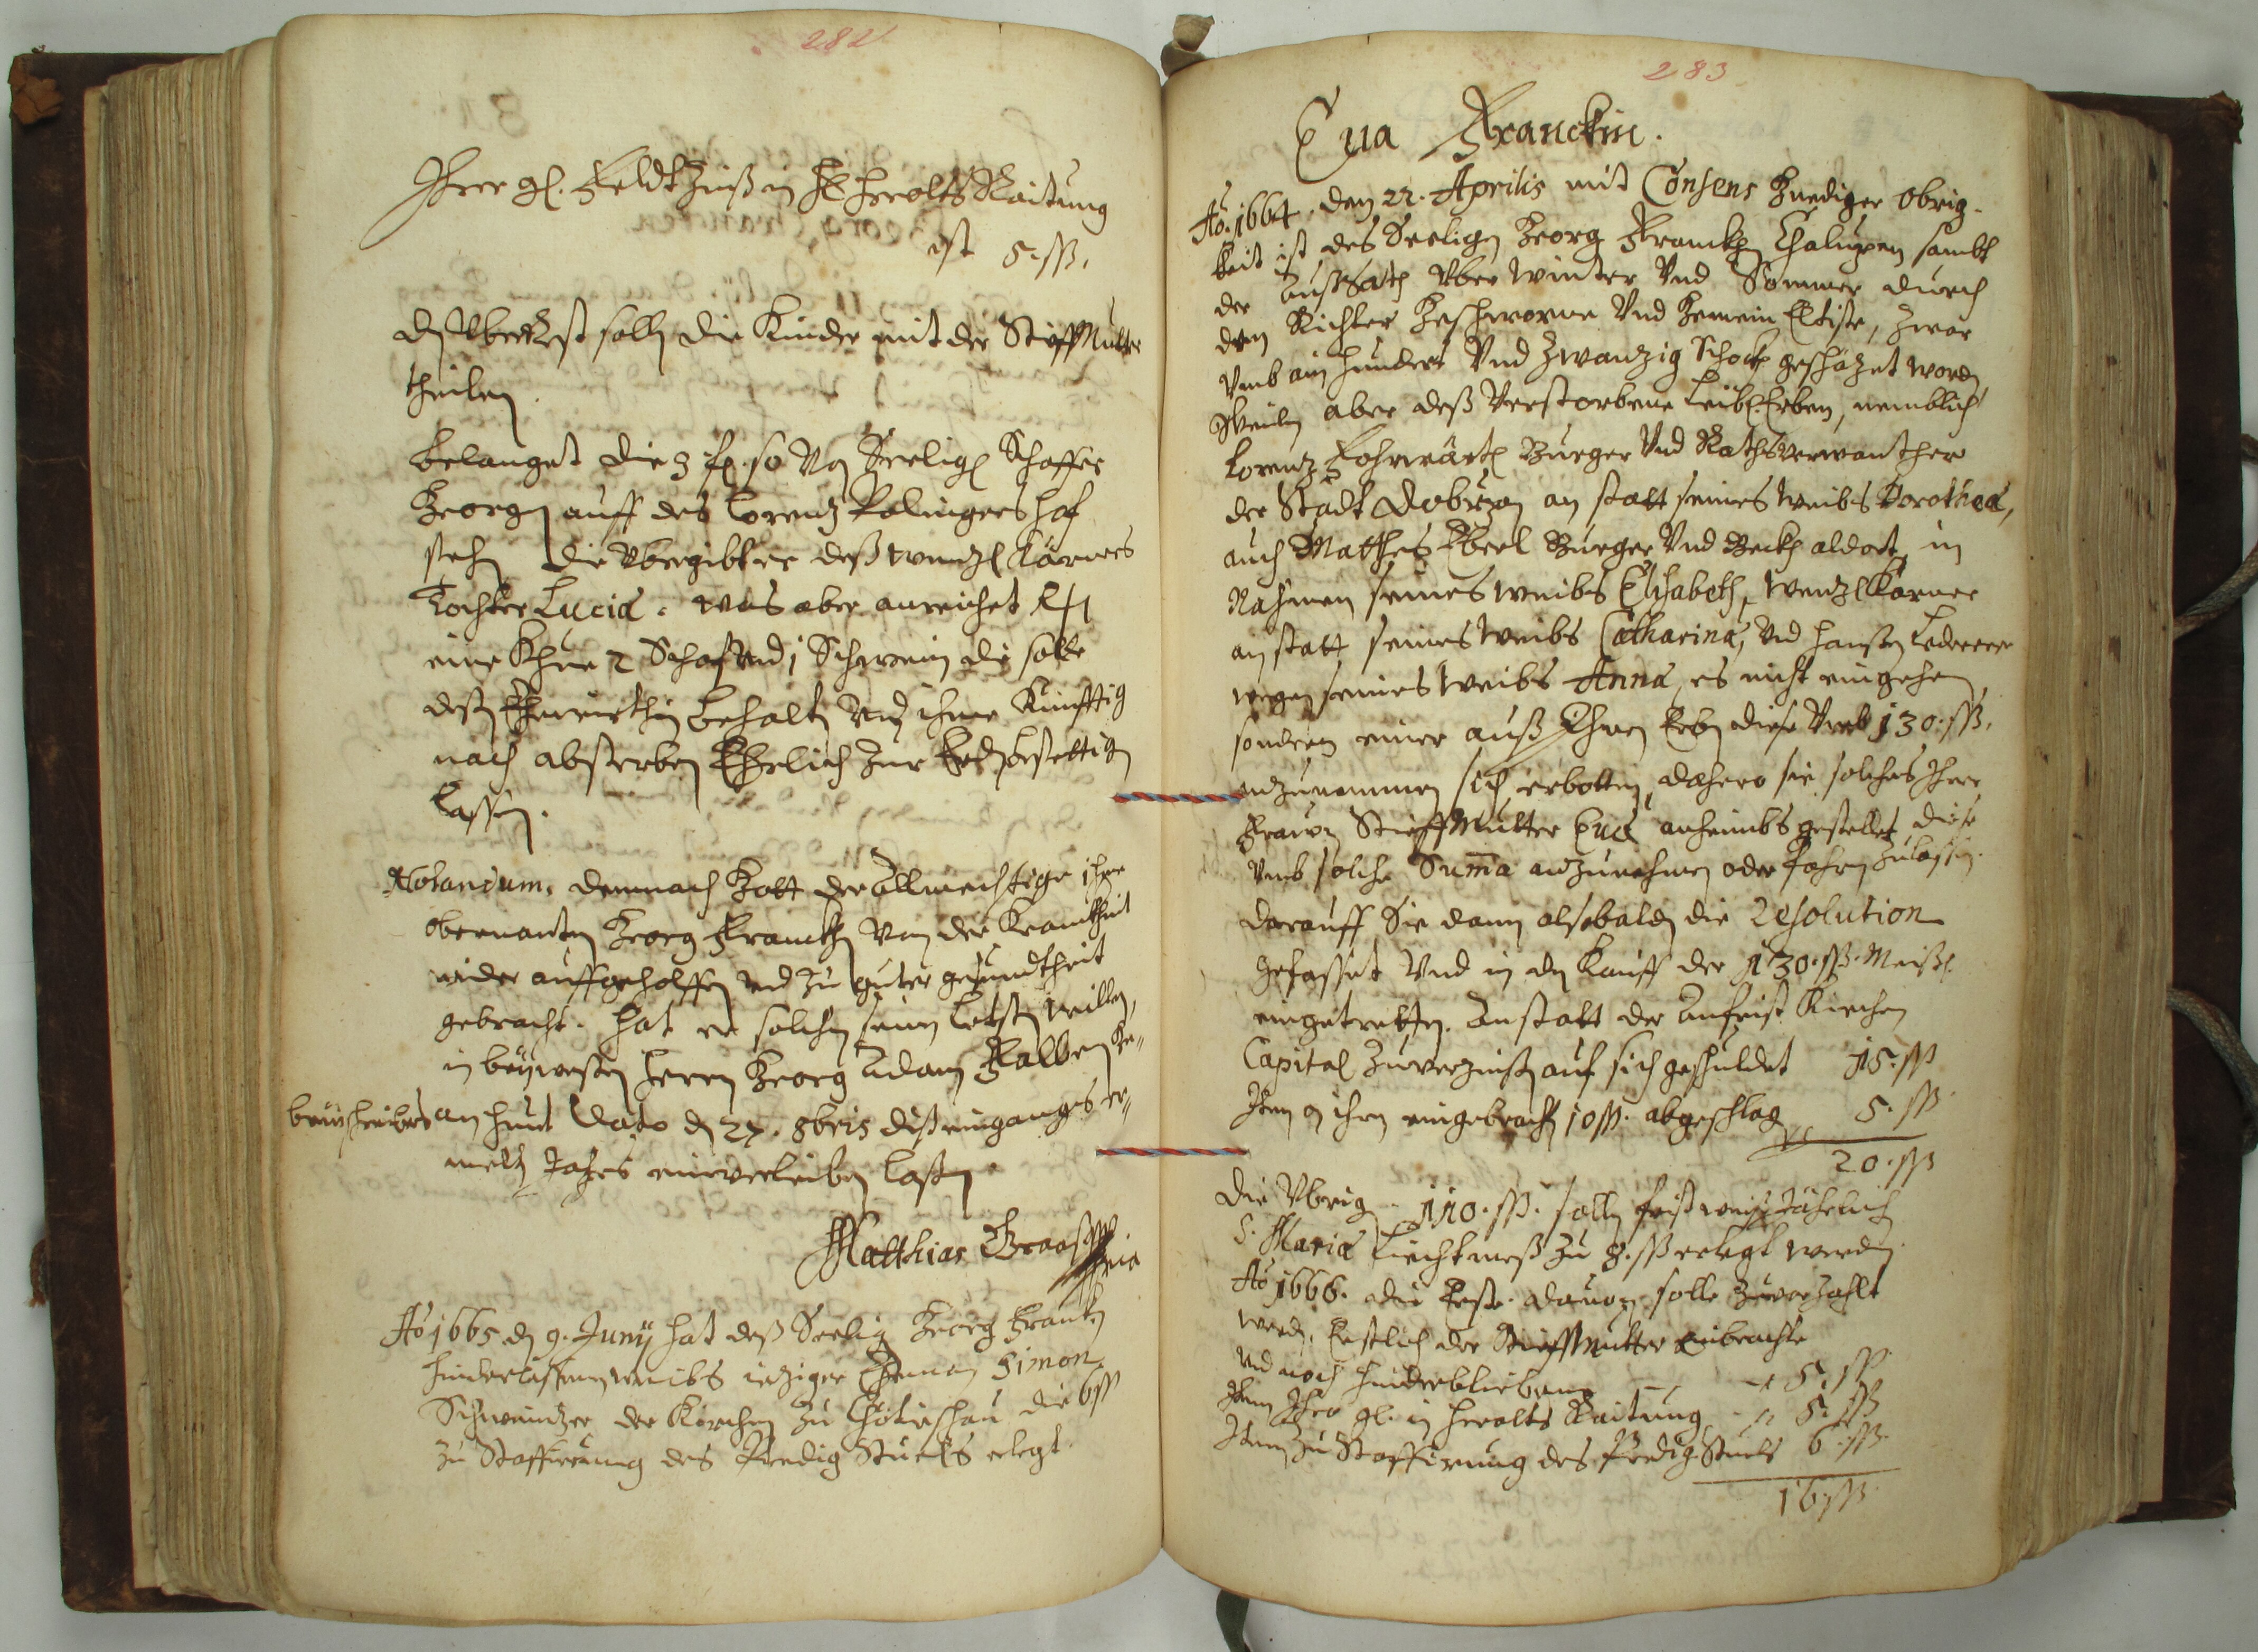 282
Ihrer gl. Feldt Zinß in H. Herolts Raitung
ist 5. ßß.
dz Vberrest solln die Kinder mit der StieffMutter
theilen
Belanget die 3 so Von Seelig Schaffer
Georgen auff des Lorentz Palingers Hof
stehen die Vbergibt er deß Wentzl Körners
Tochter Lucia. was aber anreichet
eine Khue 2 Schaf Vnd 1 Schwein die solle
deßen Ehewirthin behalten Vnd ihme Künfftig
nach absterben Ehrlich Zur Erden bestettigen
lassen.
Notandum, demnach Gott der Allmechtige ihme
obernanten Georg Franckhen Von der Krankheit
wider auffgeholffen Vnd Zu guter gesundtheit
gebracht. hat er solchen seinen Letsten willen,
in beyweßen Herrn Georg Adam Kalben
breuschreibers an heut Dato den 27. 8bris diß eingangs er-
melten Jahrs einverleiben laßen
Matthias
Ao 1665 den 9. Junij hat deß Seelig Georg Franken
hinderlassenen weibs ietziger Eheman Simon
Schweintzer der Kirchen Zu Chotieschau die 6 ßß
Zu Staffierung des Predig Stuels erlegt.
283
Eua Franckin.
Ao. 1664. den 22. Aprilis mit Consens Gnediger Obrig-
keit ist des Seeligen Georg Franckhen Chalupen sambt
der Außsath Vber Winter Vnd Sommer durch
den Richter Geschworne Vnd Gemein Eltiste, Zwar
Vmb ain hundert Vnd Zwantzig Schock geschätzet worden
Weilen aber deß Verstorbene Leibs Erben, nemblich
Lorentz Burger Vnd Rathsverwanther
der Stadt Dobrzan an statt seines weibs Dorothea,
auch Matthes Eberl Burger Vnd Beckh aldort, in
Nahmen seines weibs Elisabeth, Wentzl Körner
an statt seines weibs Catharina, Vnd Hansen Lederer
wegen seines weibs Anna, es nicht eingehen
sondern einer auß Ihnen Erben diese Vmb 130. ßß.
anzunemmen sich erbotten, dahero sie solches Ihrer
Frawen StieffMutter Eua anheimbs gestellet diese
Vmb solche Summa anzunehmen oder fahren zulassen.
darauff Sie dann alsobalden die Resolution
gefasset Vnd in den Kauff der 130. ßß. Meißl.
eingetretten. Anstatt der Anfrist Kirchen
Capital Zuverzinßen auf sich geschuldet 15. ßß
Item an ihren eingebrachten 10 ßß. abgeschlagen 5. ßß
20. ßß
Die Vbrigen 110. ßß. sollen fristweiß Jährlich
S. Mariae Liechtmeß Zu 3. ßß erlegt werden.
Ao 1666. die Erste. davon solle Zuvor Zahlt
werden. Erstlich der StieffMutter Einbrachte
Vnd noch hinderbliebene 5. ßß
Item Ihro gl. in Herolts Raitung 5. ßß
Item Zu Staffirung des Predig Stuels 6. ßß.
16. ßß.